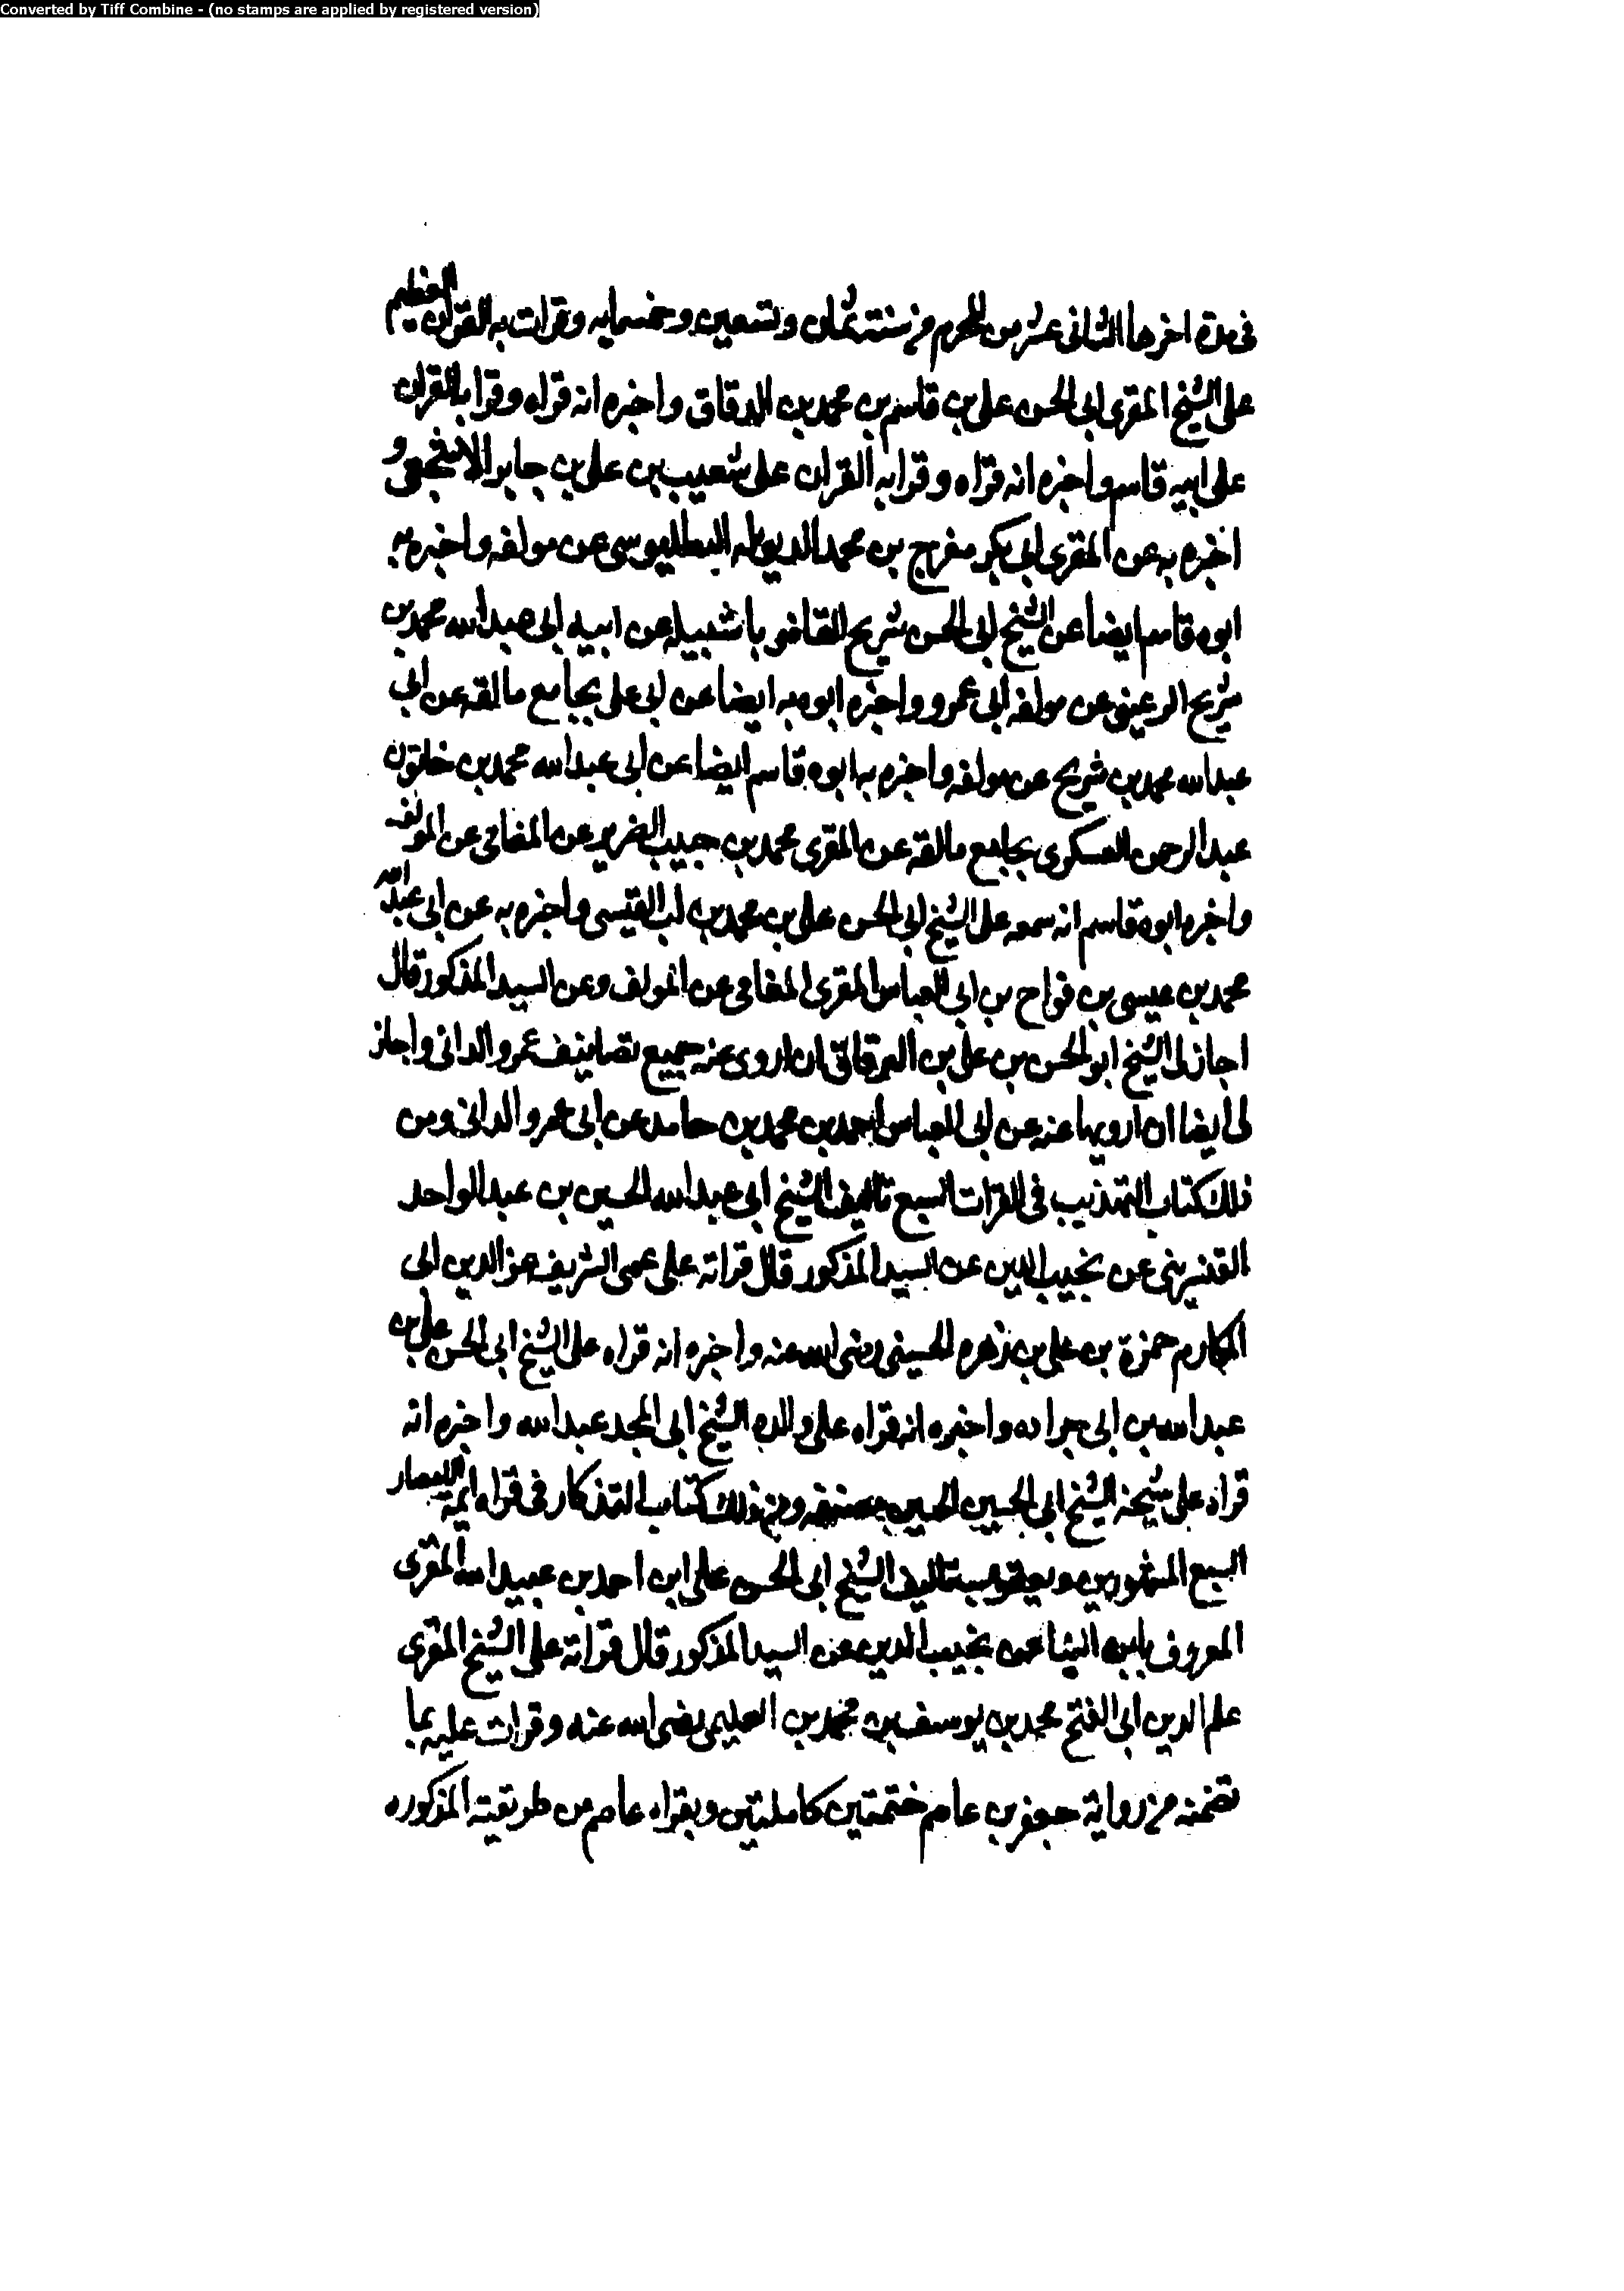 Converted by Tiff Combine - (no stamps are applied by registered version)
فى مدة اخرها الثانى عشر من المحرم من سنة ثمان وتسعين وخمسمايه وقرات به القران العظيم
على الشيخ المقرى ابى الحسن على بن قاسم بن محمد بن الدقاق واخبره انه قراه وقرا به القران
على ابيه قاسم واخبره انه قراه وقرا به القران على شعيب بن على بن جابر الاشجعى و
اخبره به عن المقرى ابى بكر مفرج بن محمد البطليوسى عن مولفه واخبره به
ابوه قاسم ايضا عن الشيخ ابى الحسن شريح القاضى باشبيليه عن ابيه ابى عبد الله محمد بن
شريح الرعينى عن مولفه ابى عمرو واخبره ابوه به ايضا عن ابى على بجامع مالقه عن ابى
عبد الله محمد بن شريح عن مولفه واخبره به ابوه قاسم ايضا عن ابى عبد الله محمد بن
عبد الرحمن العسكرى بجامع مالقه عن المقرى محمد بن حبيب الضرير عن المغامى عن المولفه
واخبره ابوه قاسم انه سمعه على الشيخ ابى الحسن على بن محمد بن لب القيسى واخبره به عن ابى عبد الله
محمد بن عيسى بن فواح بن ابى العباس المقرى المغامى عن المولف وعن السيد المذكور قال
اجاز لى الشيخ ابو الحسن بن على بن الدقاق ان اروى عنه جميع تصانيف عمرو الدانى واجاز
لى ايضا ان ارويها عنه عن ابى العباس احمد بن محمد بن حامد عن ابى عمرو الدانى ومن
ذلك كتاب التهذيب فى القرات السبع تاليف الشيخ ابى عبد الله الحسين بن عبد الواحد
القنسرينى عن نجيب الدين عن السيد المذكور قال قراته على عمى الشريف عز الدين ابى
المكارم حمزة بن على بن زهره الحسينى رضى الله عنه واخبره انه قراه على الشيخ ابى الحسن على بن
عبد الله بن ابى جراده واخبره انه قراه على والده الشيخ ابى المجد عبد الله واخبره انه
قراه على شيخه الشيخ ابى الحسين الحسين مصنفه ومن ذلك كتاب التذكار فى قراه ايمة الامصار
السبع المشهورين ويعقوب تاليف الشيخ ابى الحسن على ابن احمد بن عبيد الله المقرى
المعروف بابن عن نجيب الدين عن السيد المذكور قال قراته على الشيخ المقرى
علم الدين ابى الفتح محمد بن يوسف بن محمد بن العليمى رضى الله عنه وقرات عليه بما
تضمنه من رواية حعفر بن عاصم ختمتين كاملتين وبقراه عاصم من طريقته المذكوره